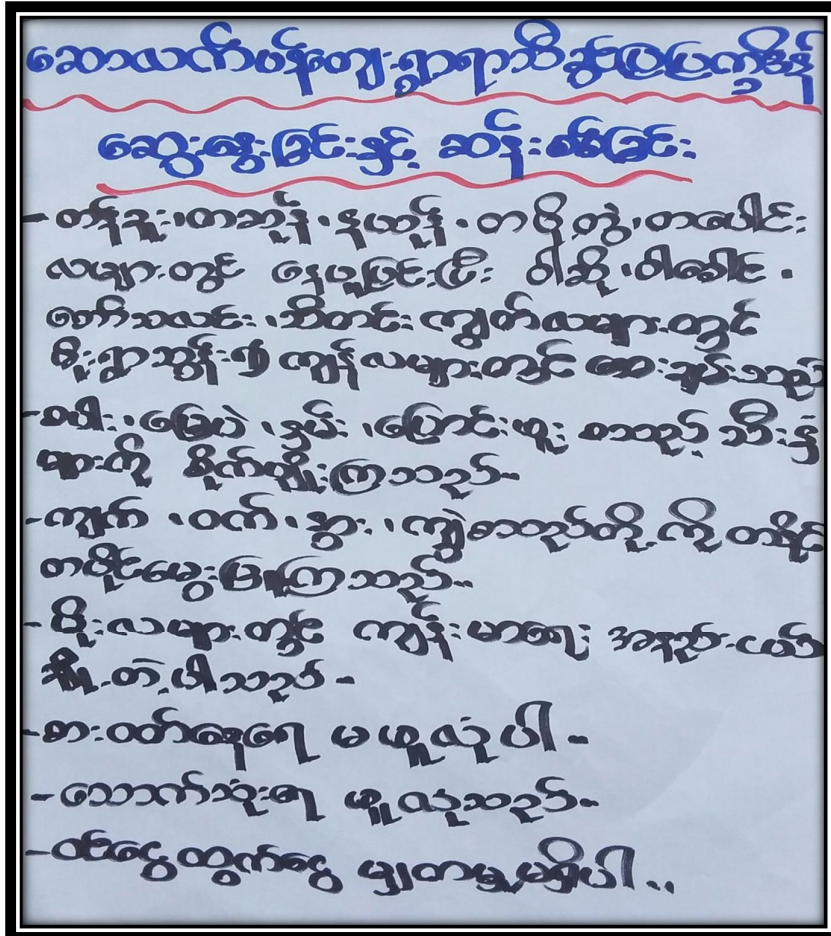 သောယက်ပန်ကျေးရွာရာသီခွင်ပြပြက္ခဒိန်
ဆွေးနွေးခြင်းနှင့် ဆန်းစစ်ခြင်း
- တန်ခူး၊ကဆုန်၊နယုန်၊တပို့တွဲ၊တပေါင်း
လများတွင် နေပူပြင်းပြီး ဝါဆို၊ဝါခေါင်၊
တော်သလင်း၊သီတင်းကျွတ်လများတွင်
မိုးရွာသွန်း၍ ကျန်လများတွင် အေးချမ်းသည်
- စပါး၊မြေပဲ၊နှမ်း၊ပြောင်းဖူး စသည့် သီးနှံ
များကို စိုက်ပျိုးကြသည်။
- ကြက်၊ဝက်၊နွား၊ကျွဲစသည်တို့ကို တစ်နိုင်
တပိုင်မွေးမြူကြသည်။
- မိုးလများတွင် ကျန်းမာရေး အနည်းငယ်
ချို့တဲ့ပါသည်။
- စားဝတ်နေရေး မဖူလုံပါ။
- သောက်သုံးရေ ဖူလုံသည်။
- ဝင်ငွေထွက်ငွေ မျှတမှုမရှိပါ။